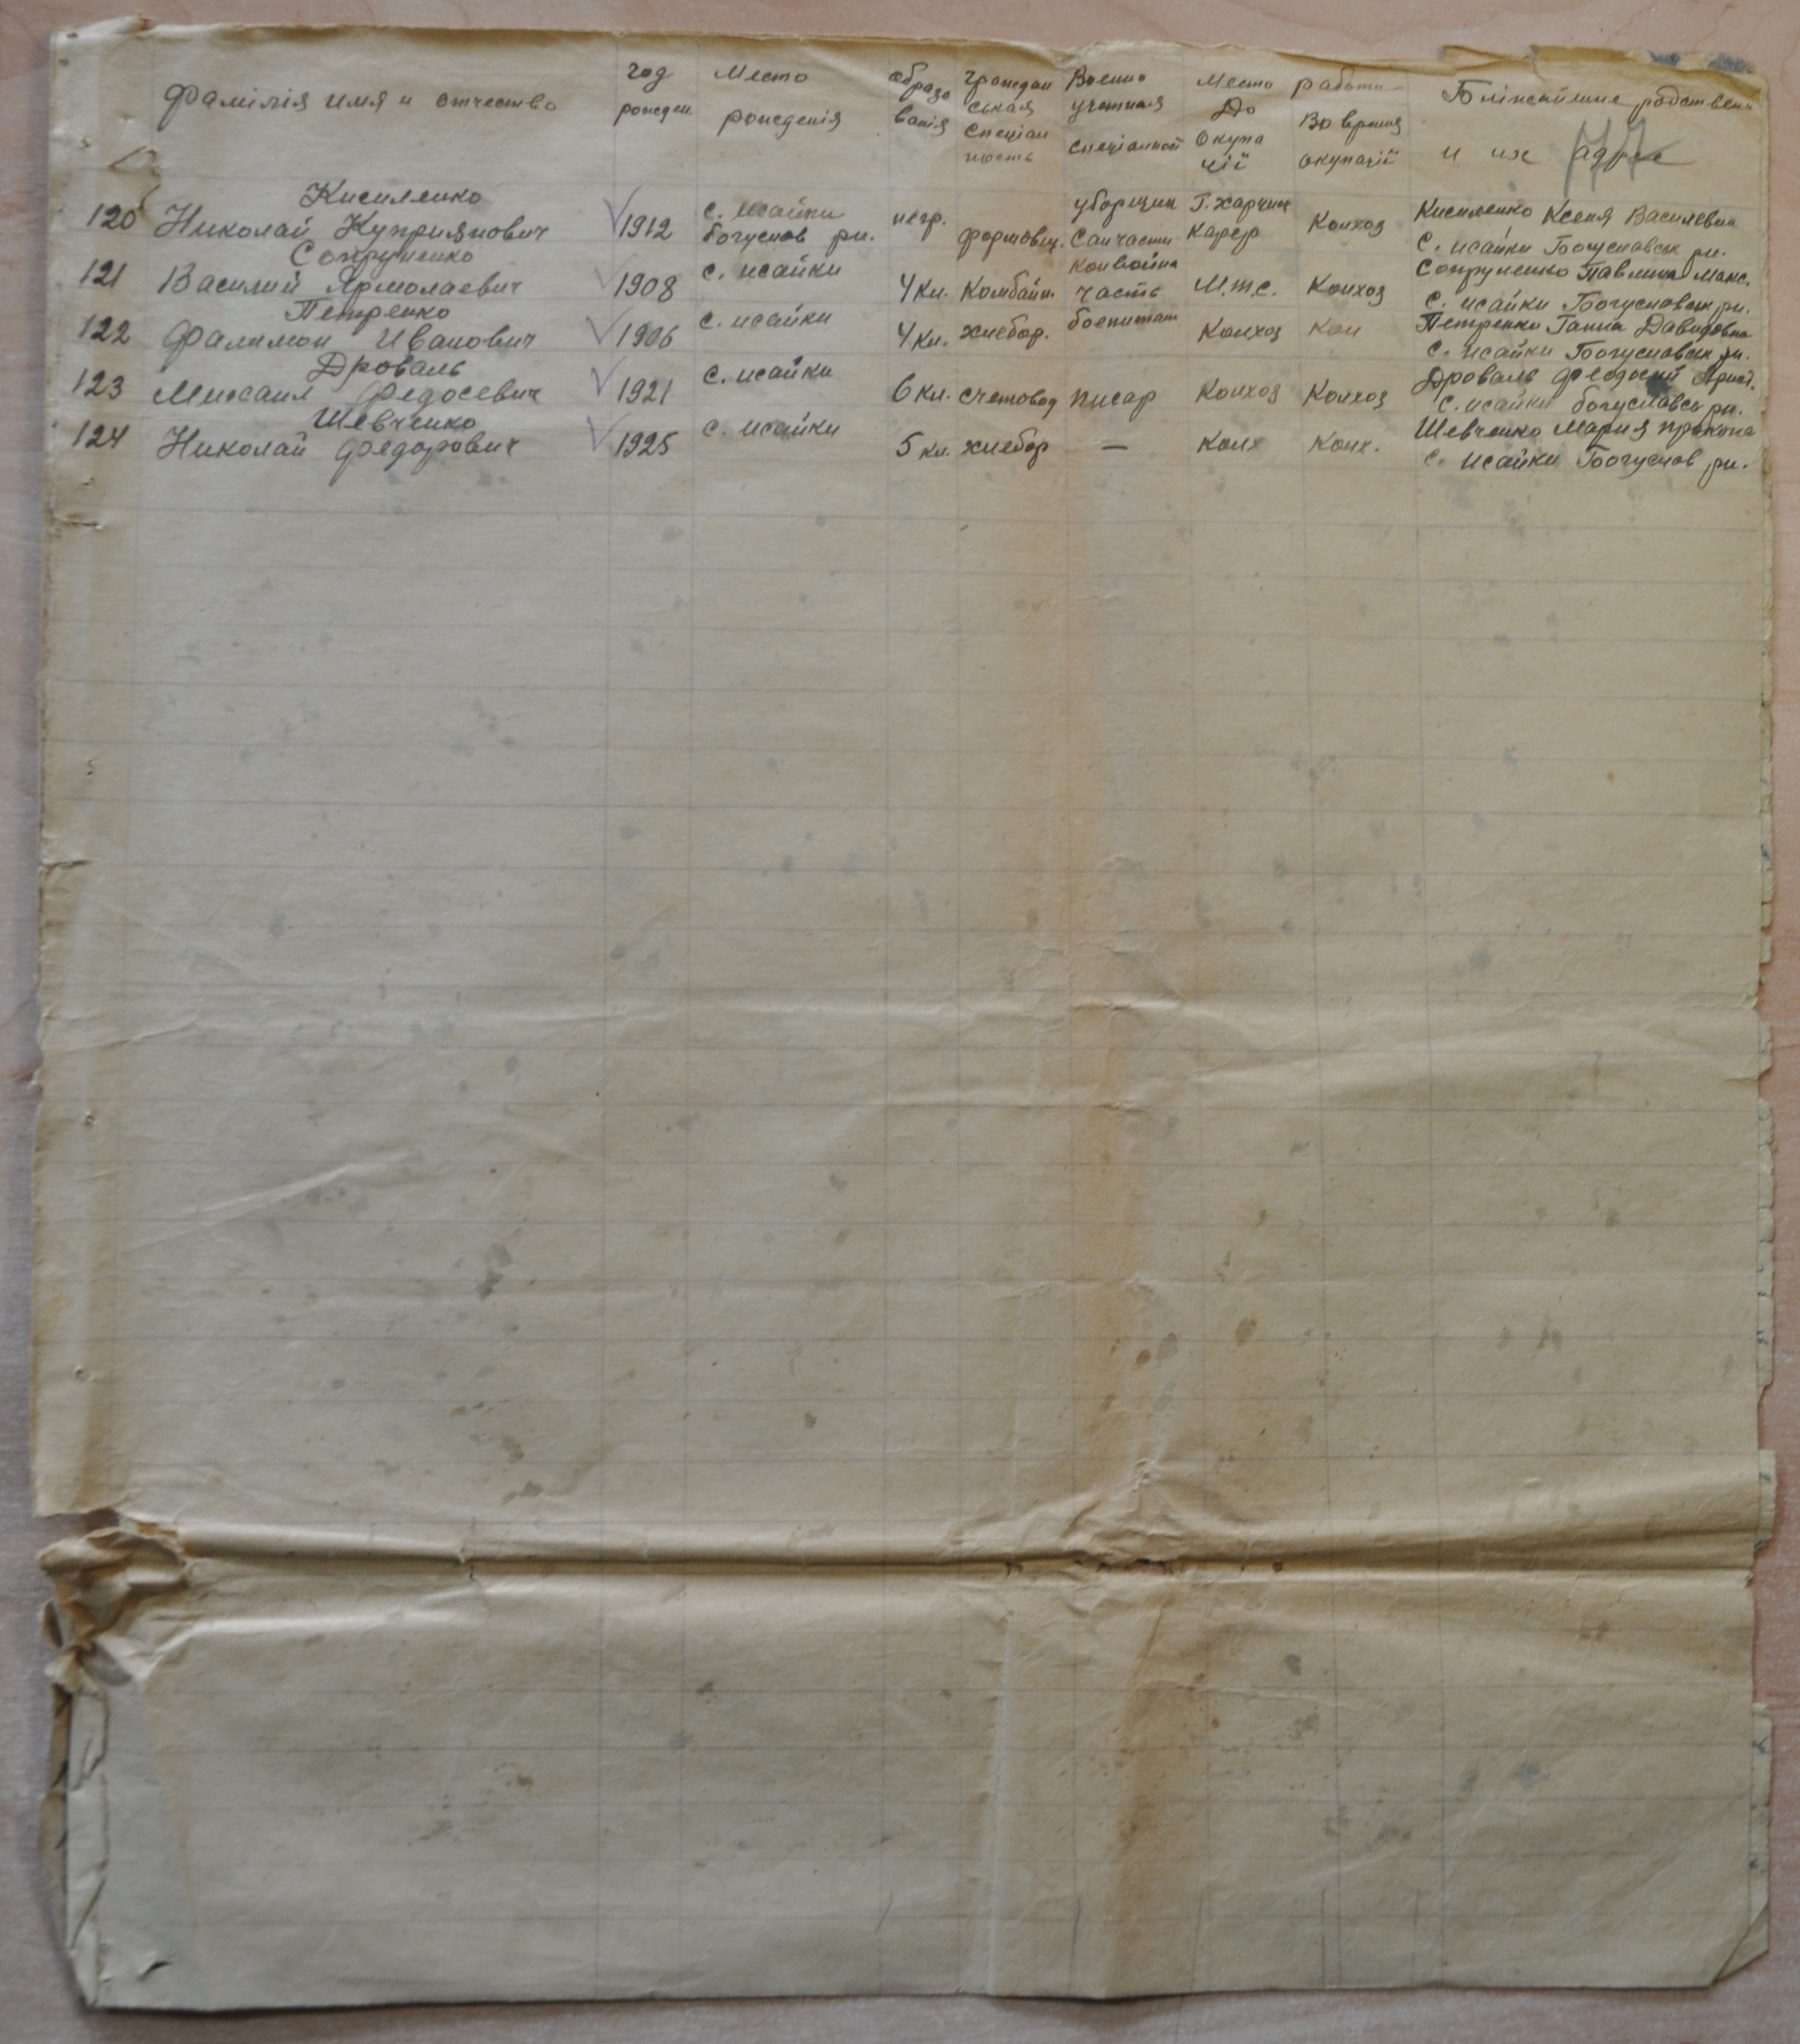 Фамілія имя и отчество | год рожден. | Место рожденія | образо вания | Граждан ськая спеціал ность | Воено учетная спеціалност | Место работи До окупа ції | Во время окупації | Бліжайшие родствен и их адрес
77
120 Кисиленко Николай Куприянович | 1912 | с. исайки богуслав рн. | негр. | формовщ. | уборщик Санчасти | Г. Харчик карер | Колхоз | Кисиленко Ксения Василевна с. исайки Богуславськ рн.
121 Сопруненко Василий Ярмолаевич | 1908 | с. исайки | 4 кл. | Комбайн. | конвойна часть | М.т.с. | Колхоз | Сопруненко Павлина Макс. с. исайки Богуславськ рн.
122 Петренко Фалимон Иванович | 1906 | с. исайки | 4 кл. | хлебор. | боепитат | Колхоз | Кол | Петренко Ганна Давидовна с. исайки Богуславськ рн.
123 Дроваль Михаил Федосевич | 1921 | с. исайки | 6 кл. | счетовод | писар | Колхоз | Колхоз | Дроваль Феодосий с. исайки богуславськ рн.
124 Шевченко Николай Федорович | 1925 | с. исайки | 5 кл. | хлебор | — | Колх | Колх. | Шевченко Мария Прокопа с. исайки Богуслав рн.